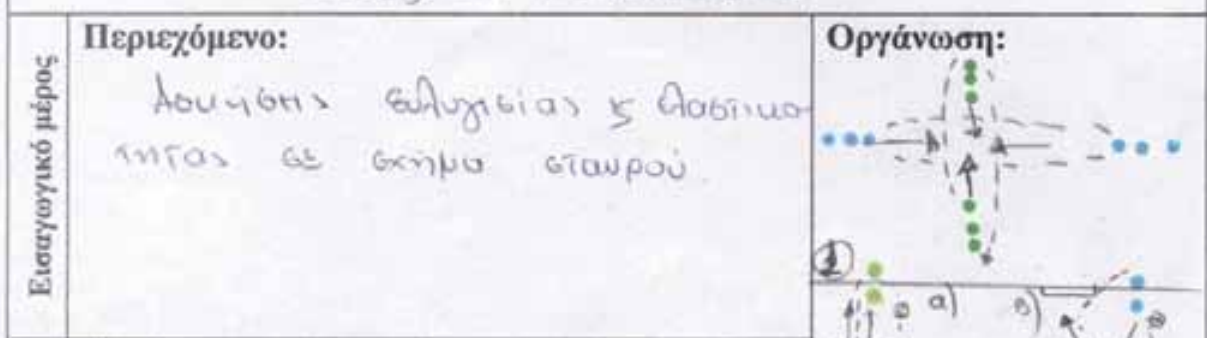 Εισαγωγικό μέρος
Περιεχόμενο:
Ασκήσεις ευλυγισίας ϗ ελαστικο-
τητας σε σχήμα σταυρού.
Οργάνωση:
1
α) β)